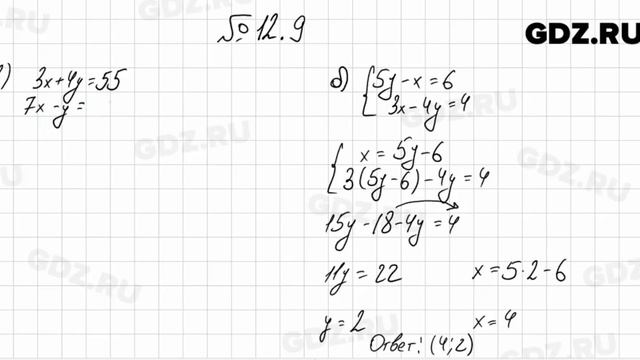 № 12.9
GDZ.RU
) 3x+4y=55
7x-y=
б) { 5y-x=6
3x-4y=4
{ x=5y-6
3(5y-6)-4y=4
15y-18-4y=4
11y=22
x=5·2-6
y=2
x=4
Ответ: (4;2)
GDZ.RU
GDZ.RU
GDZ.RU
GDZ.RU
GDZ.RU
GDZ.RU